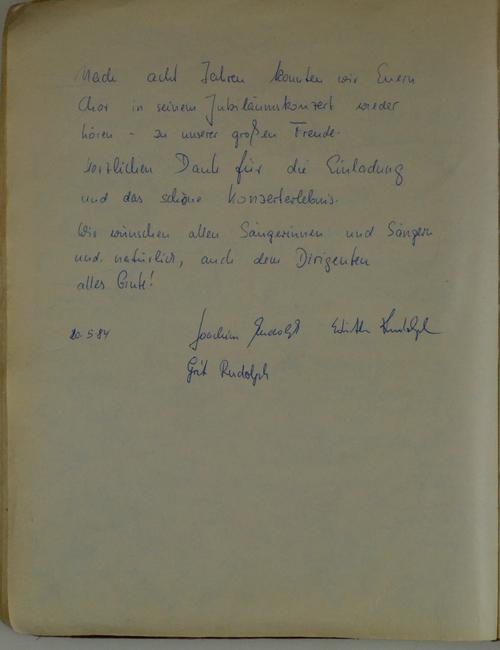 Nach acht Jahren konnten wir Euern
Chor in seinem Jubiläumskonzert wieder
hören - zu unserer großen Freude.
Herzlichen Dank für die Einladung
und das schöne Konzerterlebnis.
Wir wünschen allen Sängerinnen und Sängern
und natürlich, auch dem Dirigenten
alles Gute!
20.5.84 Joachim Rudolph Edith Rudolph
Grit Rudolph